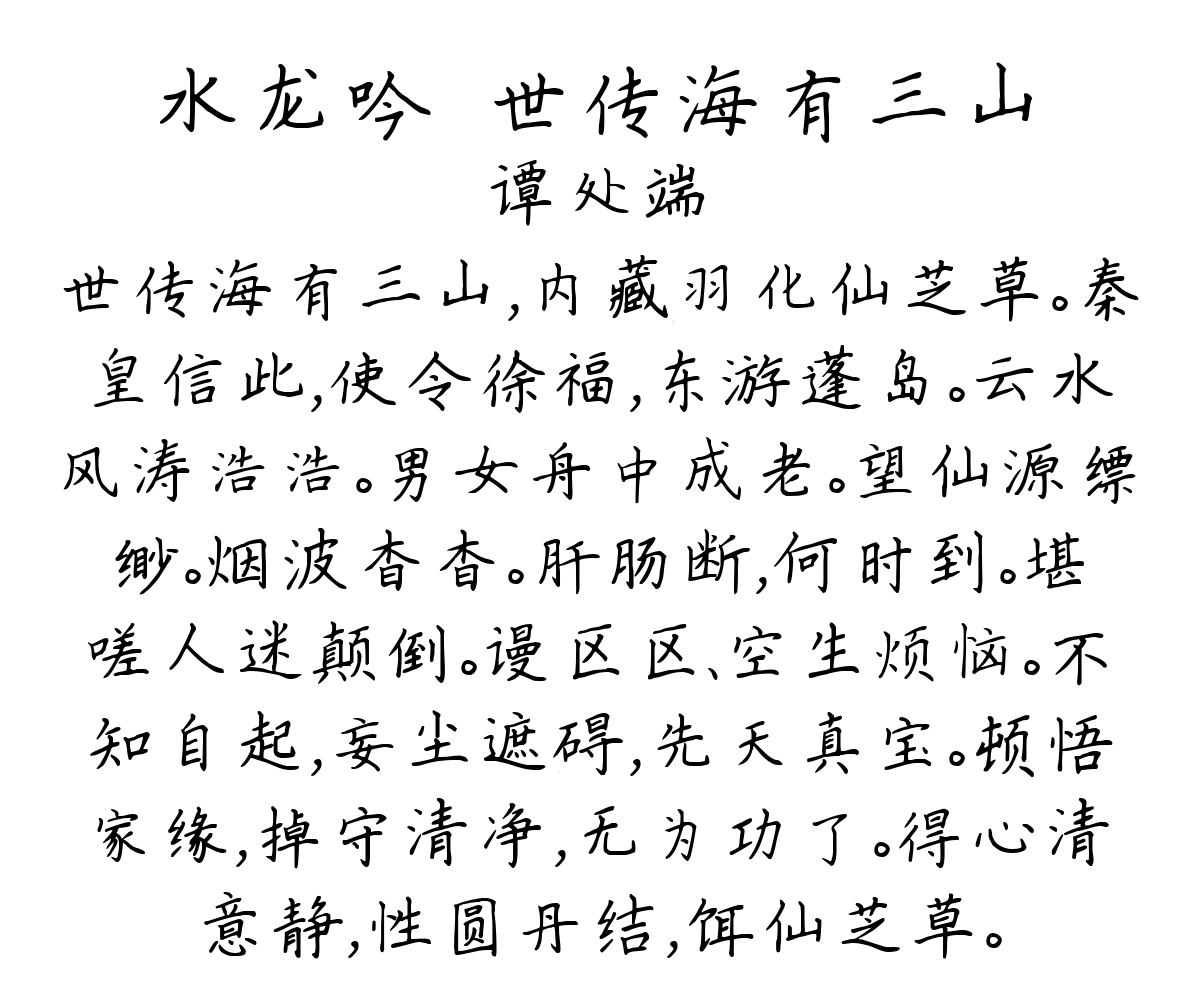 水龙吟 世传海有三山
谭处端
世传海有三山,内藏羽化仙芝草。秦
皇信此,使令徐福,东游蓬岛。云水
风涛浩浩。男女舟中成老。望仙源缥
缈。烟波杳杳。肝肠断,何时到。堪
嗟人迷颠倒。谩区区、空生烦恼。不
知自起,妄尘遮碍,先天真宝。顿悟
家缘,掉守清净,无为功了。得心清
意静,性圆丹结,饵仙芝草。